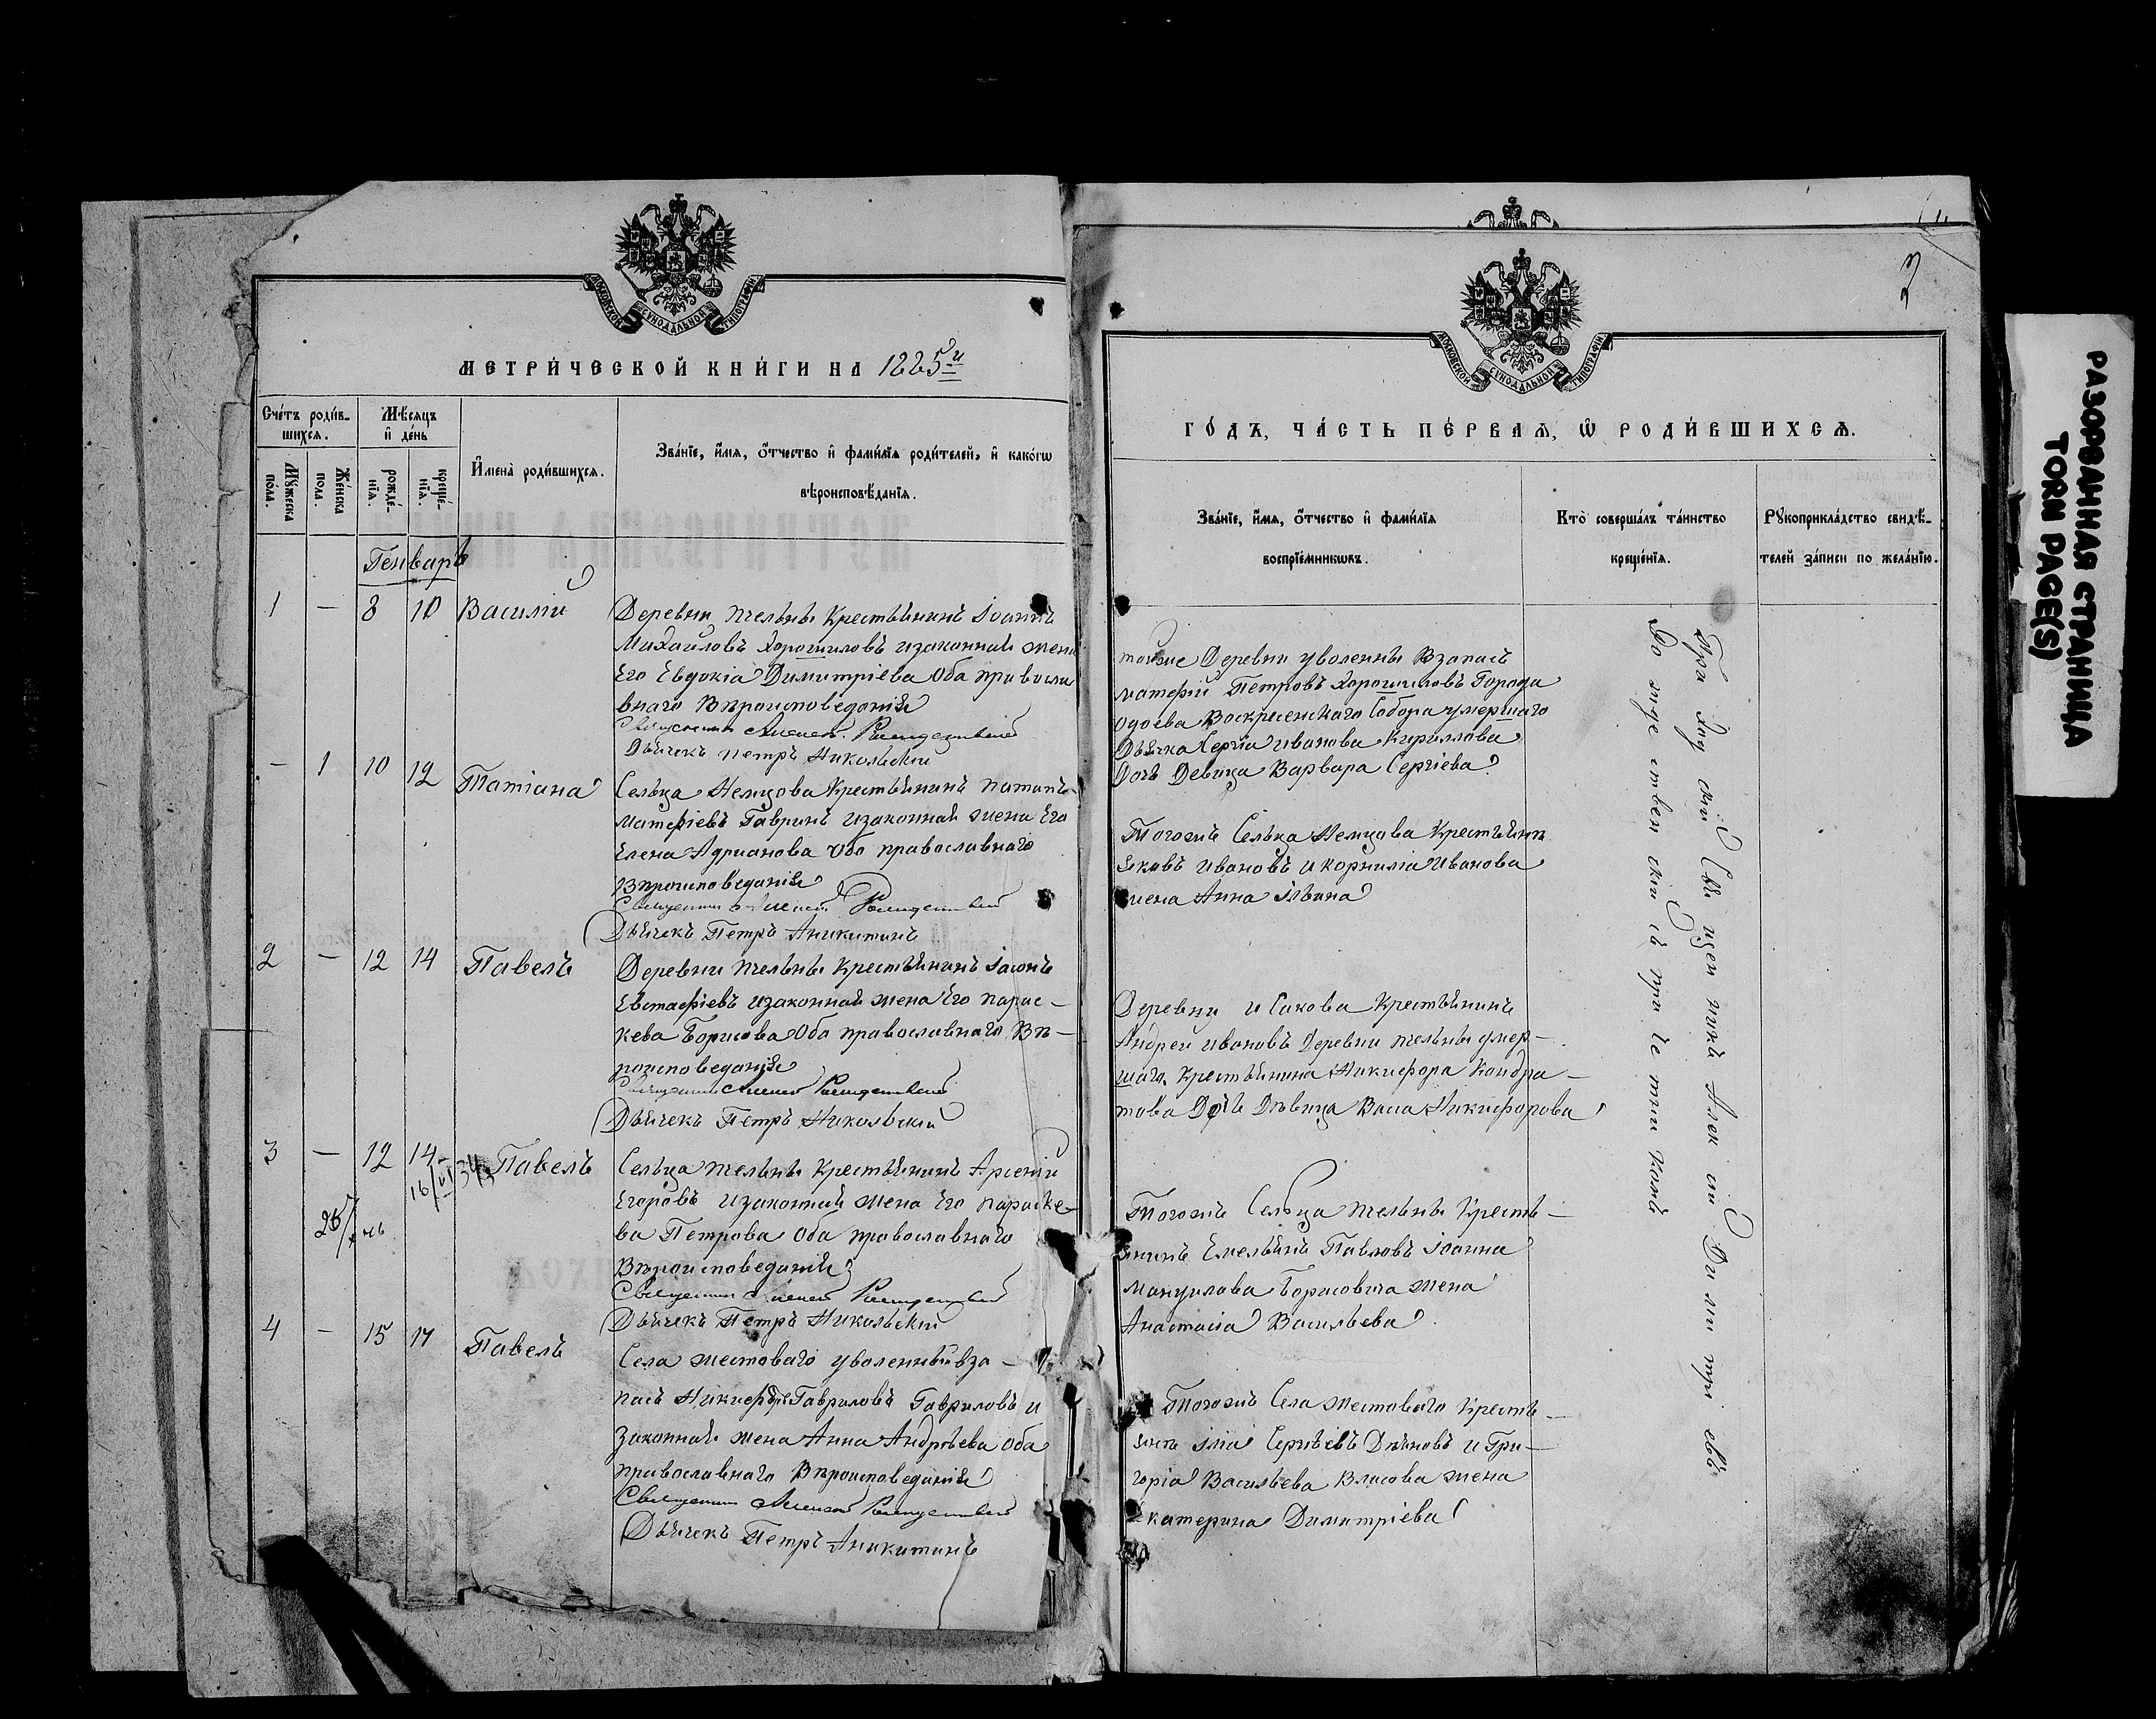 МОСКОВСКОЙ СѴНОДАЛЬНОЙ ТИПОГРАФІИ
МЕТРИ́ЧЕСКОЙ КНИ́ГИ НА 1885й
Сче́тъ роди́в-
шихся.
Мѣ́сяцъ
и҆ де́нь
Му́жеска
по́ла.
Же́нска
пола.
рожде́-
нїя.
креще́-
нїя.
И҆мена̀ роди́вшихся.
Зва́нїе, и҆́мя, ѻ҆́тчество и҆ фами́лїя роди́телей, и҆ како́гѡ
вѣроисповѣ́данїя.
Генварь
1 — 8 10 Василій
Деревни Тельны Крестьянинъ Іоаннъ
Михаиловъ Хорошиловъ изаконная жена
Его Евдокіа Димитріева Оба правосла
внаго Вѣроисповеданія
Священникъ Алексей Рождественскій
Дьячекъ Петръ Никольскій
— 1 10 12 Татіана
Сельца Немцова Крестьянинъ Потапъ
Матѳіевъ Гавринъ изаконная жена Его
Елена Адрианова Оба православнаго
Вѣроисповеданія
Священникъ Алексей Рождественскій
Дьячекъ Петръ Аникитинъ
2 — 12 14 Павелъ
Деревни Тельны Крестьянинъ Іасонъ
Евстафіевъ изаконная жена Его Парас-
кева Борисова Оба православнаго Вѣ-
роисповеданія
Священникъ Алексей Рождественскій
Дьячекъ Петръ Никольскій
3 — 12 14 Павелъ
16/VI 34
Сельца Тельны Крестьянинъ Арсеній
Егоровъ изаконная жена Его Параске-
ва Петрова Оба православнаго
Вѣроисповеданія
Священникъ Алексей Рождественскій
Дьячекъ Петръ Никольскій
4 — 15 17 Павелъ
Села Жестоваго уволенный вза-
пасъ Никифоръ Гавриловъ Гавриловъ и
Законная жена Анна Андрѣева Оба
православнаго Вѣроисповеданія
Священникъ Алексей Рождественскій
Дьячекъ Петръ Аникитинъ
2
МОСКОВСКОЙ СѴНОДАЛЬНОЙ ТИПОГРАФІИ
ГО́ДЪ, ЧА́СТЬ ПЕ́РВАЯ, Ѡ҆ РОДИ́ВШИХСЯ.
Зва́нїе, и҆́мя, ѻ҆́тчество и҆ фами́лїя
воспрїе́мникѡвъ.
Кто̀ соверша́лъ та́инство
креще́нїя.
Рꙋкоприкла́дство свидѣ́-
телей за́писи по жела́нїю.
тойже Деревни уволенны Взапасъ
Матѳій Петровъ Хорошиловъ Города
Одоева Воскресенскаго Собора умершаго
Дьячка Сергіа Иванова Кириллова
Дочь Девица Варвара Сергіева
Тогожъ Сельца Немцова Крестьянинъ
Яковъ Ивановъ и Корниліа Иванова
жена Анна Ильина
Деревни Исакова Крестьянинъ
Андрей Ивановъ Деревни Тельны умер-
шаго Крестьянина Никифора Кондра-
това Дочь Девица Васа Никифорова
Тогожъ Сельца Тельны Кресть-
янинъ Емельянъ Павловъ Іоанна
Мануилова Борисовича жена
Анастасіа Васильева
Тогожъ Села Жестоваго Кресть-
янинъ Іліа Сергѣевъ Дьяновъ и Гри-
горіа Васильева Власова жена
Екатерина Димитріева
Приходскій Священникъ Алексій Димитріевъ
Рождественскій съ причетникомъ
РАЗОРВАННАЯ СТРАНИЦА
TORN PAGE(S)